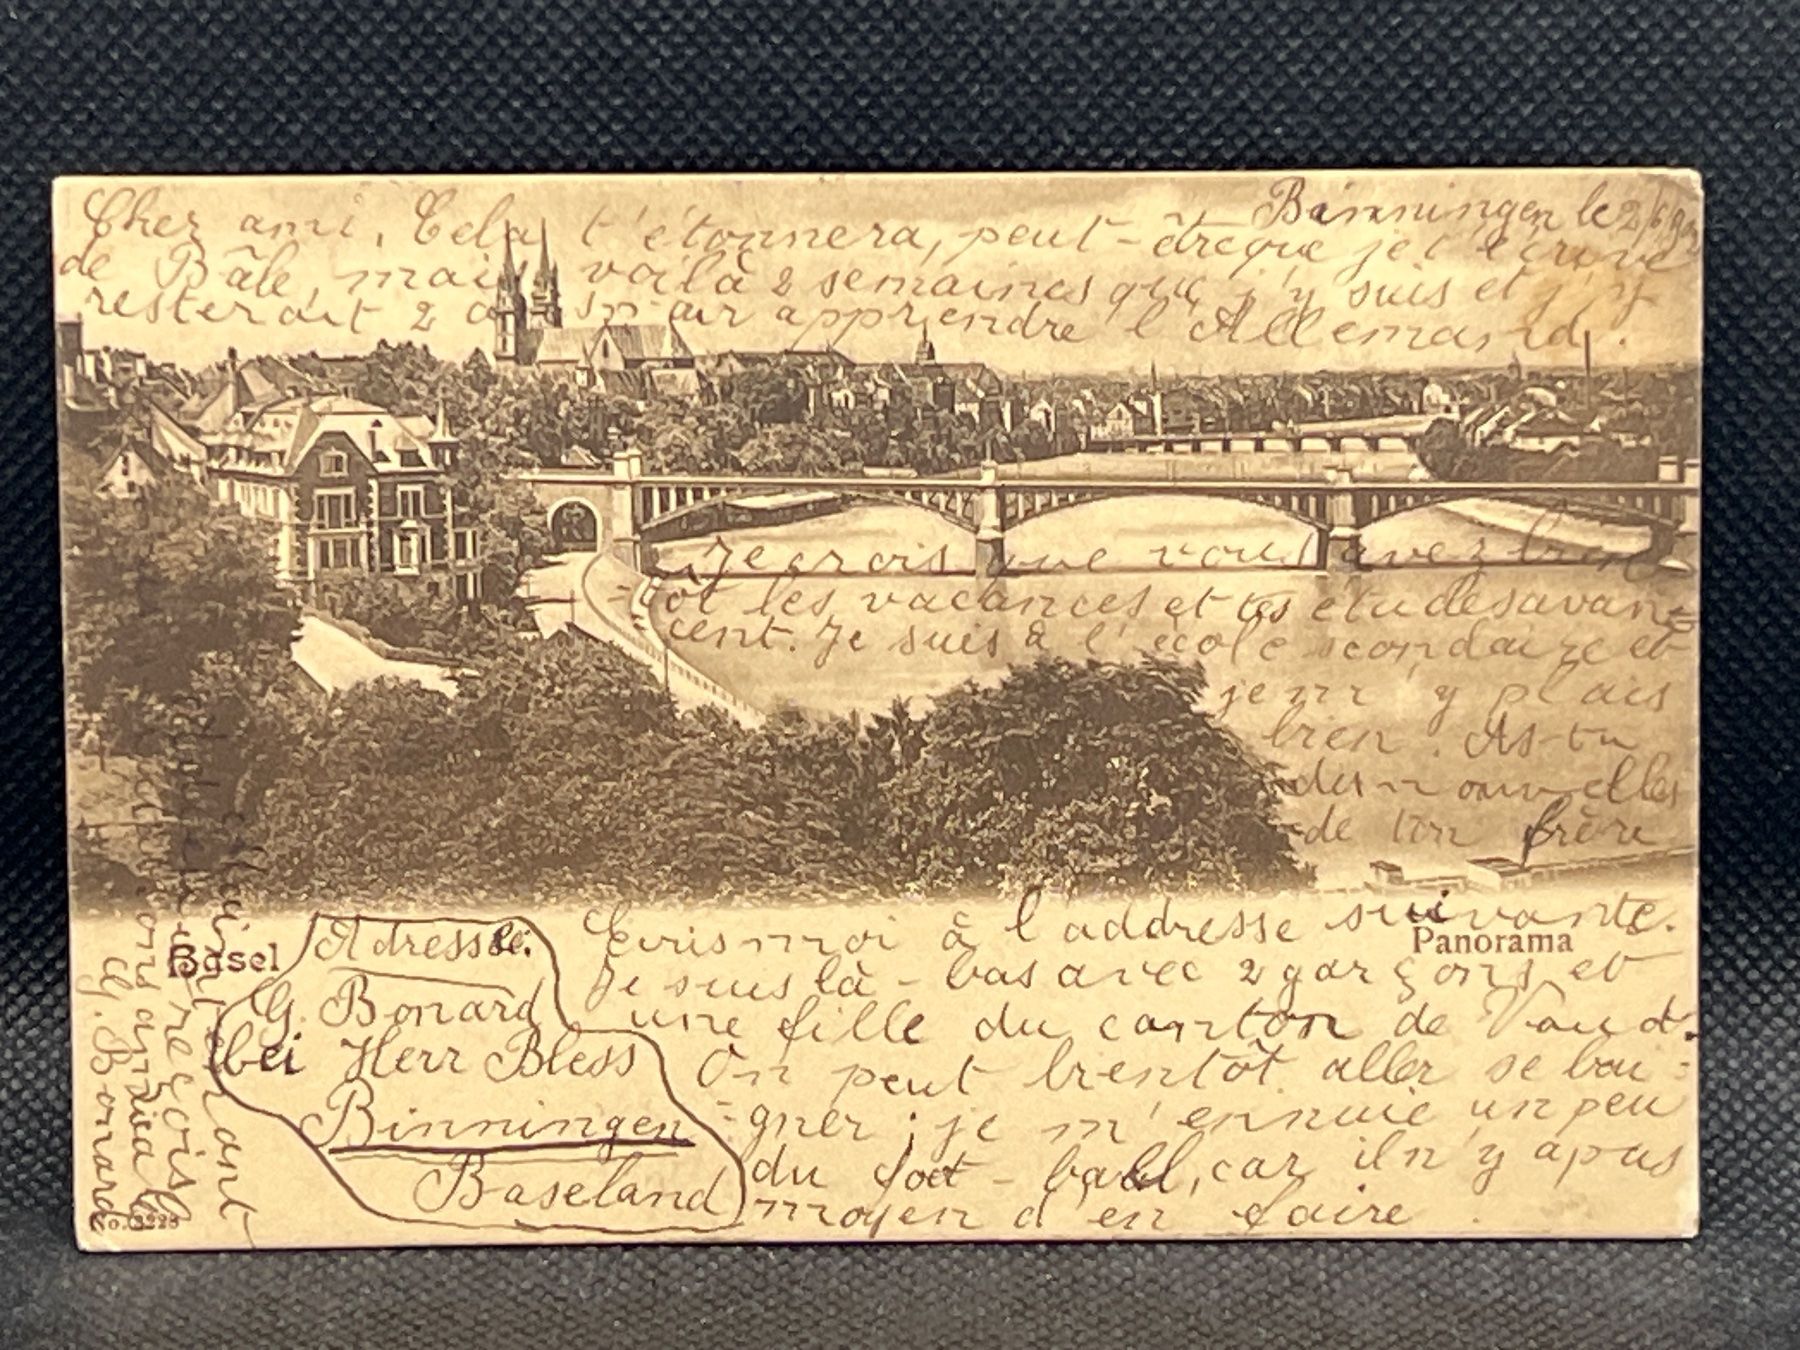 Binningen le 2/6
Cher ami, Cela t'étonnera, peut-être que je t'écrive
de Bâle, mais voilà 2 semaines que j'y suis et j'y
resterait 2 a pour apprendre l'Allemand.
Je crois que vous avez bien
les vacances et tes étudesavan=
cent. Je suis à l'école scondaire et
je m'y plais
bien. As-tu
des nouvelles
de ton frère
Ecris moi à l'addresse suivante.
Je suis là-bas avec 2 garçons et
une fille du canton de Vaud.
On peut bientôt aller se bai=
=gner; je m'ennuie un peu
du foot-ball, car il n'y a pas
moyen d'en faire.
Adresse:
G. Bonard
bei Herr Bless
Binningen
Baseland
reçois
G. Bonard
Basel
Panorama
No. 3228